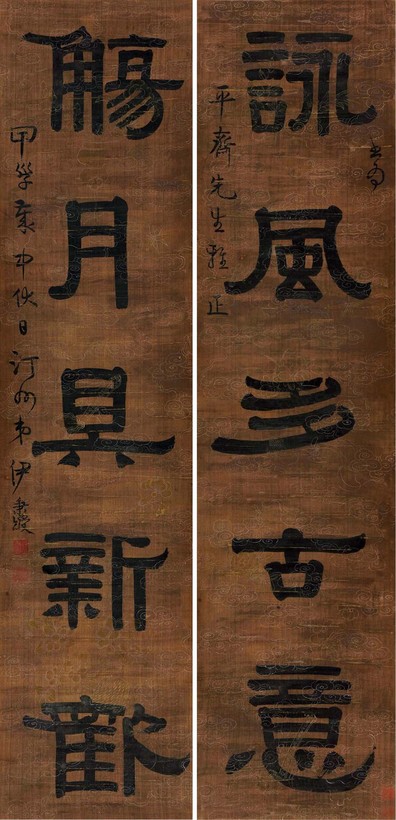 詠風多古意
平齋先生雅正
觴月具新歡
甲子歲中伏日汀州弟伊秉綬